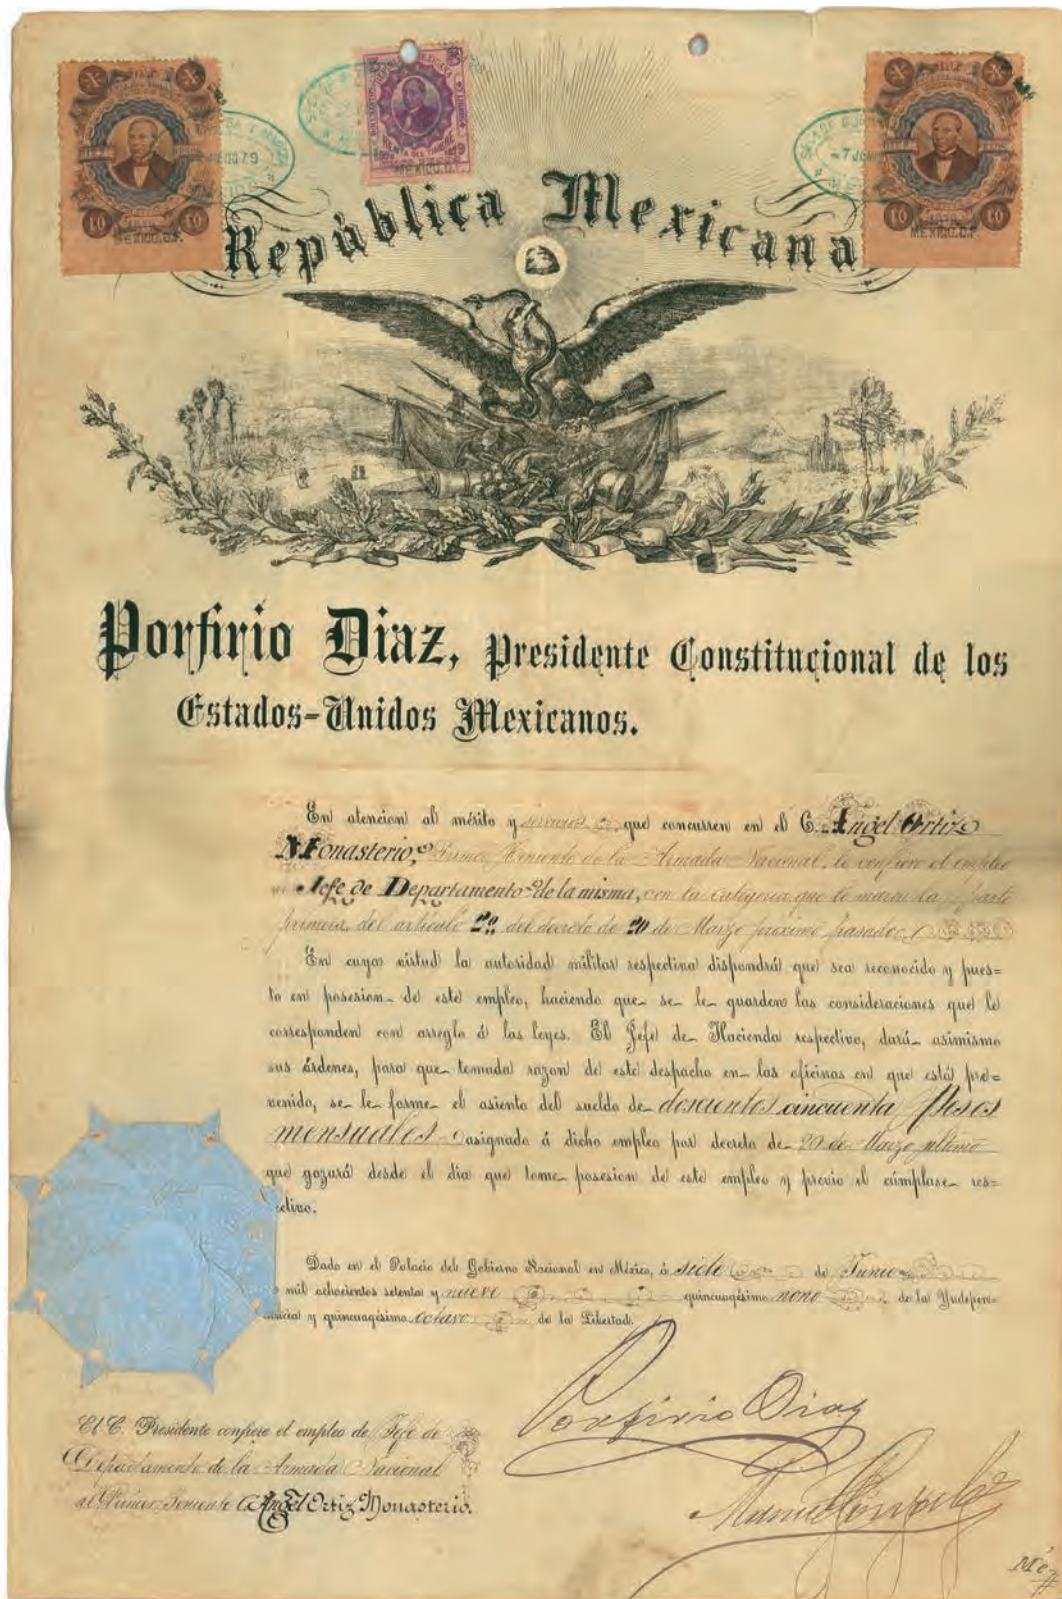 República Mexicana
Porfirio Diaz, Presidente Constitucional de los
Estados-Unidos Mexicanos.
En atencion al mérito y servicios que concurren en el C. Angel Ortiz
Monasterio, Primer Teniente de la Armada Nacional, le confiere el empleo
de Jefe de Departamento de la misma, con la categoria que le marca la parte
primera del articulo 2º del decreto de 20 de Marzo próximo pasado
En cuya virtud la autoridad militar respectiva dispondrá que sea reconocido y pues=
to en posesion de este empleo, haciendo que se le guarden las consideraciones que le
corresponden con arreglo á las leyes. El Jefe de Hacienda respectivo, dará asimismo
sus órdenes, para que tomada razon de este despacho en las oficinas en que está pre=
venido, se le forme el asiento del sueldo de doscientos cincuenta Pesos
mensuales asignado á dicho empleo por decreto de 20 de Marzo ultimo
que gozará desde el dia que tome posesion de este empleo y previo el cúmplase res=
pectivo.
Dado en el Palacio del Gobierno Nacional en México, á siete de Junio
mil ochocientos setenta y nueve quincuagésimo nono de la Yndepen=
dencia y quincuagésimo octavo de la Libertad.
Porfirio Diaz
Manuel González
El C. Presidente confiere el empleo de Jefe de
Departamento de la Armada Nacional
al Primer Teniente C. Angel Ortiz Monasterio.